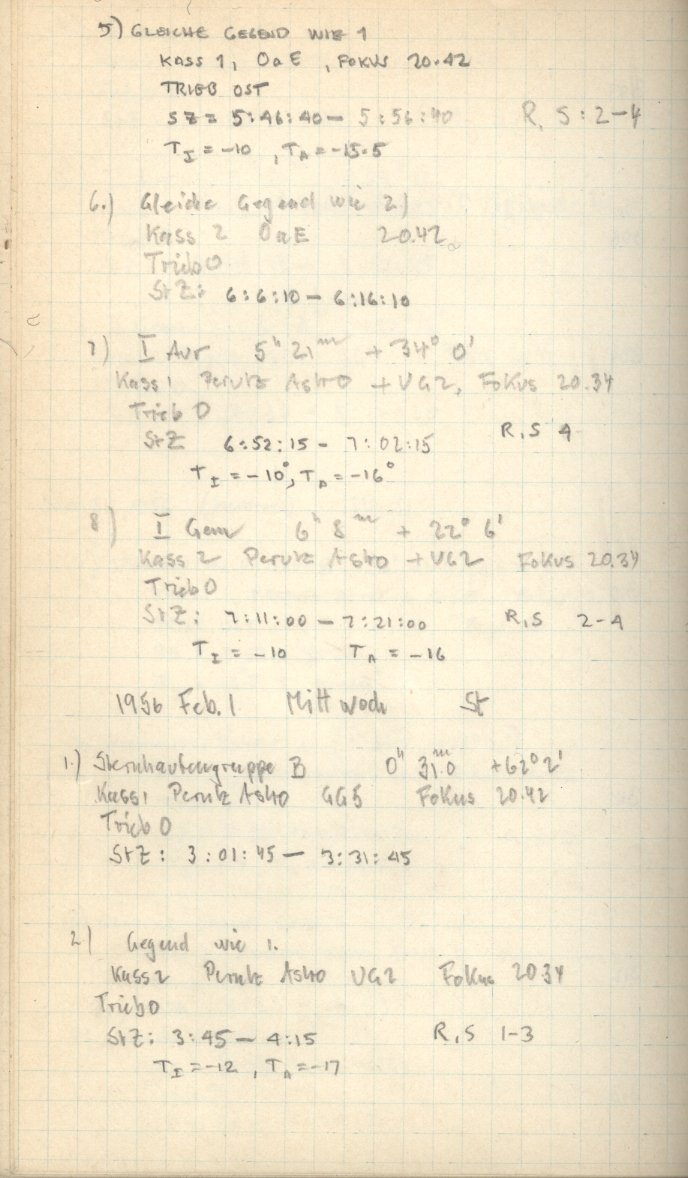 5) GLEICHE GEGEND WIE 1
KASS 1, OaE, FOKUS 20.42
TRIEB OST
SZ = 5:46:40 – 5:56:40 R, S: 2–4
T_I = -10, T_A = -15.5
6.) Gleiche Gegend wie 2)
Kass 2 OaE 20.42
Trieb O
StZ: 6:6:10 – 6:16:10
7) I Aur 5h 21m + 34° 0'
Kass 1 Perutz Astro + UG2, Fokus 20.34
Trieb O
StZ 6:52:15 – 7:02:15 R, S 4
T_I = -10°, T_A = -16°
8) I Gem 6h 8m + 22° 6'
Kass 2 Perutz Astro + UG2 Fokus 20.34
Trieb O
StZ: 7:11:00 – 7:21:00 R, S 2-4
T_I = -10 T_A = -16
1956 Feb. 1 Mittwoch St
1.) Sternhaufengruppe B 0h 31m.0 +62° 2'
Kass 1 Perutz Astro GG5 Fokus 20.42
Trieb O
StZ: 3:01:45 – 3:31:45
2) Gegend wie 1.
Kass 2 Perutz Astro UG2 Fokus 20 34
Trieb O
StZ: 3:45 – 4:15 R, S 1-3
T_I = -12, T_A = -17